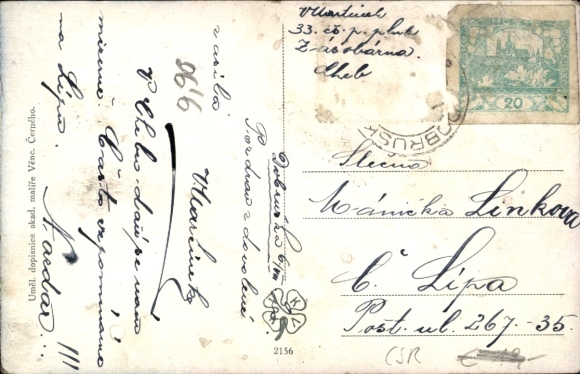 Vlastimil
33. čs. p. pluk
Zásobárna
Cheb
20
DOBRUŠK
Slečna
Mánička Linkova
Č. Lípa
Pošt. ul. 267-35.
ČSR
Dobruška 6/VIII
Pozdrav z dovolené
zasílá
Vlastimil
V Chebu daří se nám
mírně. Často vzpomínáme
na Lípu. Nazdar...
Uměl. dopisnice akad. malíře Věnc. Černého.
2156